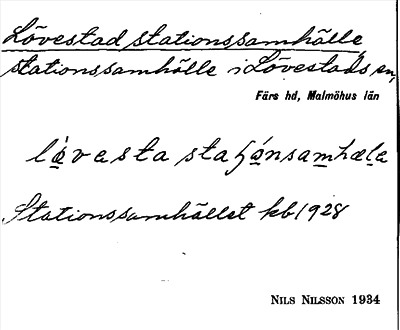 Lövestad stationssamhälle,
stationssamhälle i Lövestads sn,
Färs hd, Malmöhus län
lö̀vasta staʃónsamhæla
Stationssamhället kb 1928
NILS NILSSON 1934